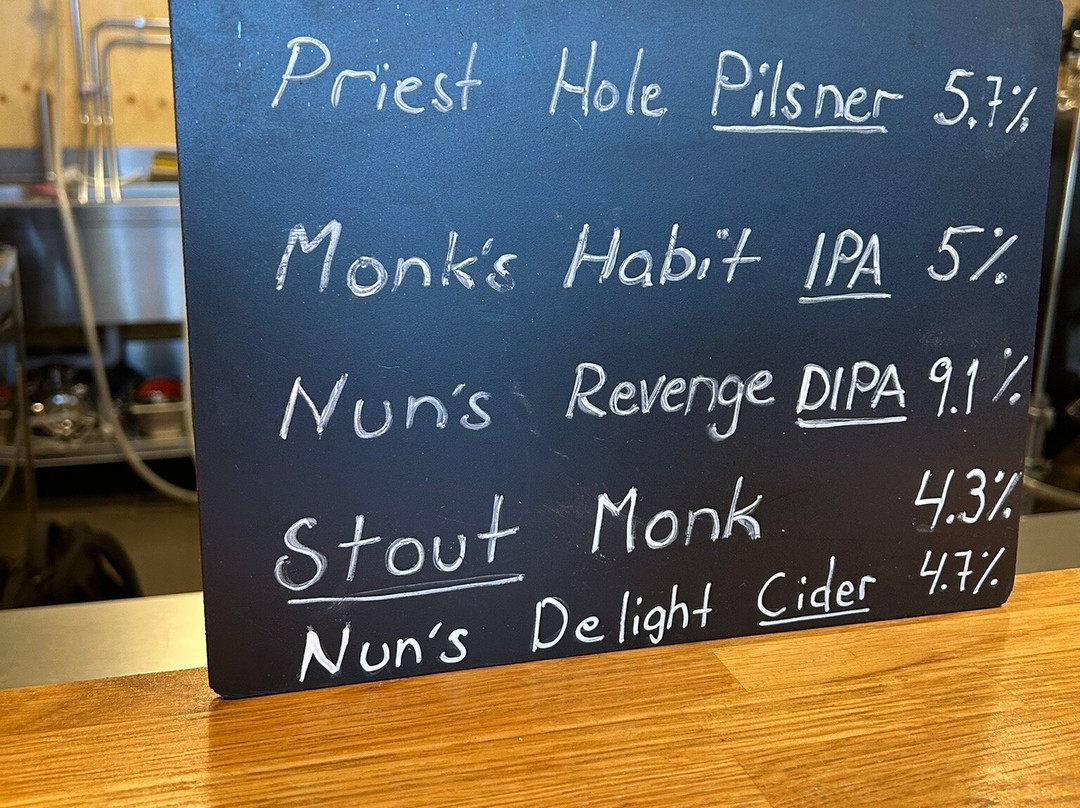 Priest Hole Pilsner 5.7%
Monk's Habit IPA 5%
Nun's Revenge DIPA 9.1%
Stout Monk 4.3%
Nun's Delight Cider 4.7%